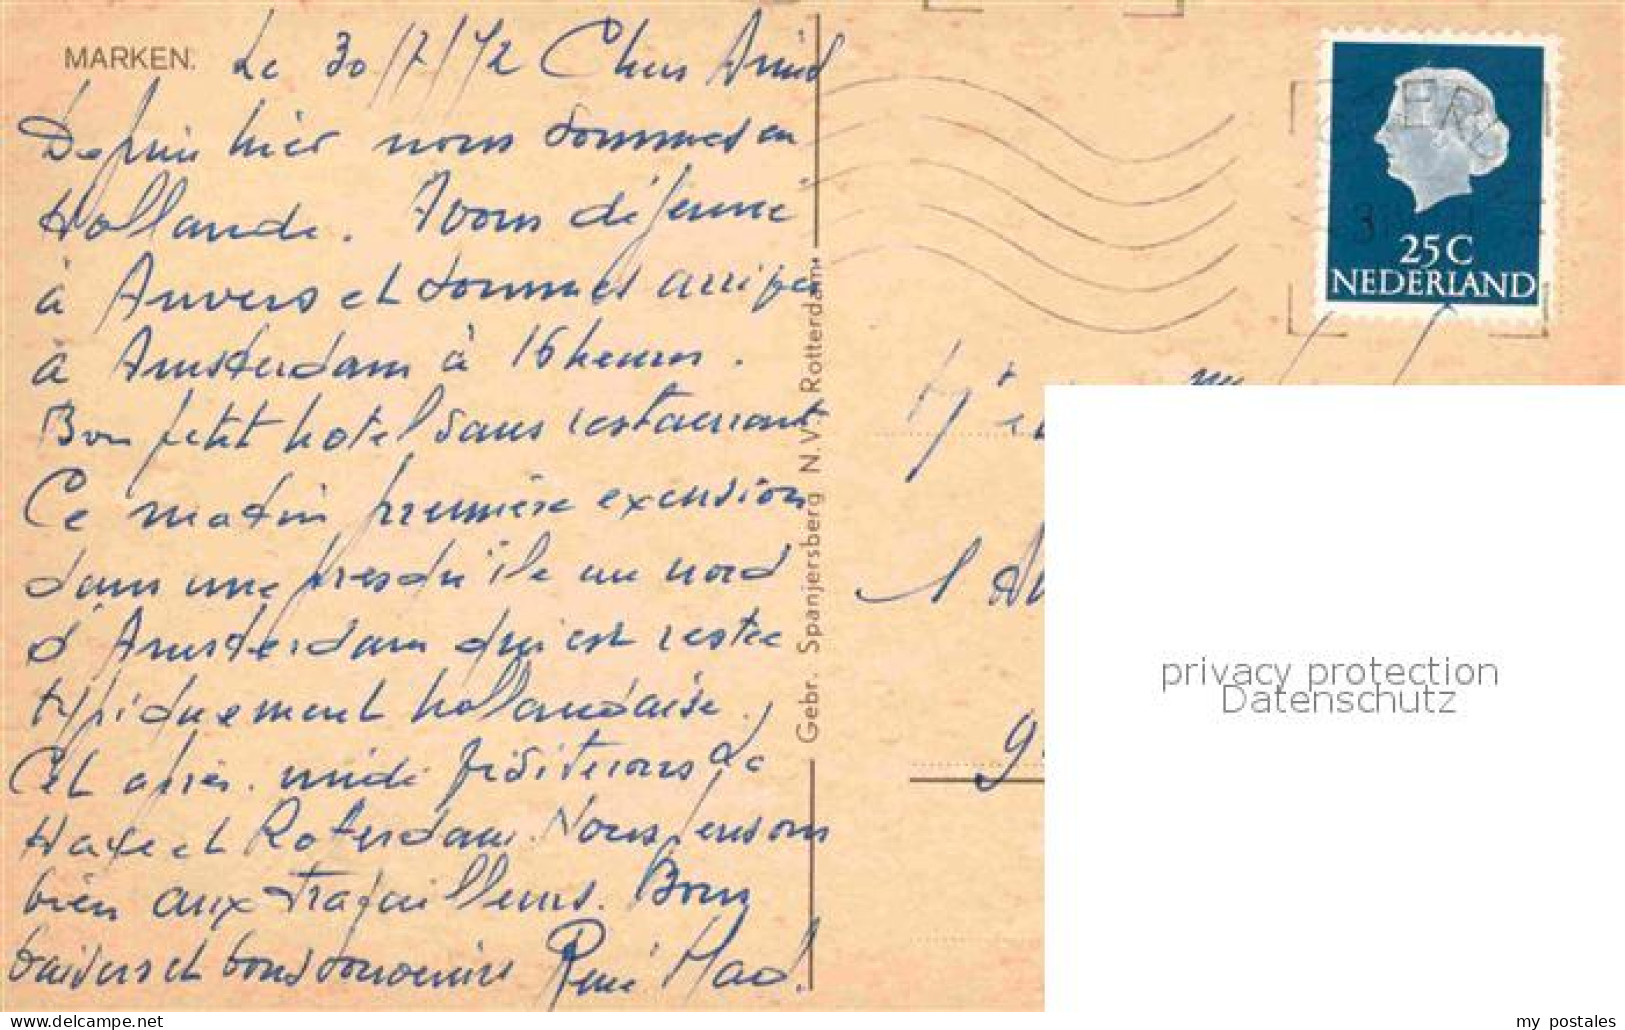 MARKEN.
Le 30/7/72 Chers Amis
Depuis hier nous sommes en
Hollande. Avons déjeuné
à Anvers et sommes arrivés
à Amsterdam à 16 heures.
Bon petit hotel sans restaurant
Ce matin première excursion
dans une presqu'île au nord
d'Amsterdam qui est restée
typiquement hollandaise.
Cet après. midi visiterons La
Haye et Roterdam. Nous pensons
bien aux travailleurs. Bons
baisers et bons souvenirs René Mad.
Gebr. Spanjersberg N.V., Rotterdam
25C
NEDERLAND
privacy protection
Datenschutz
my postales